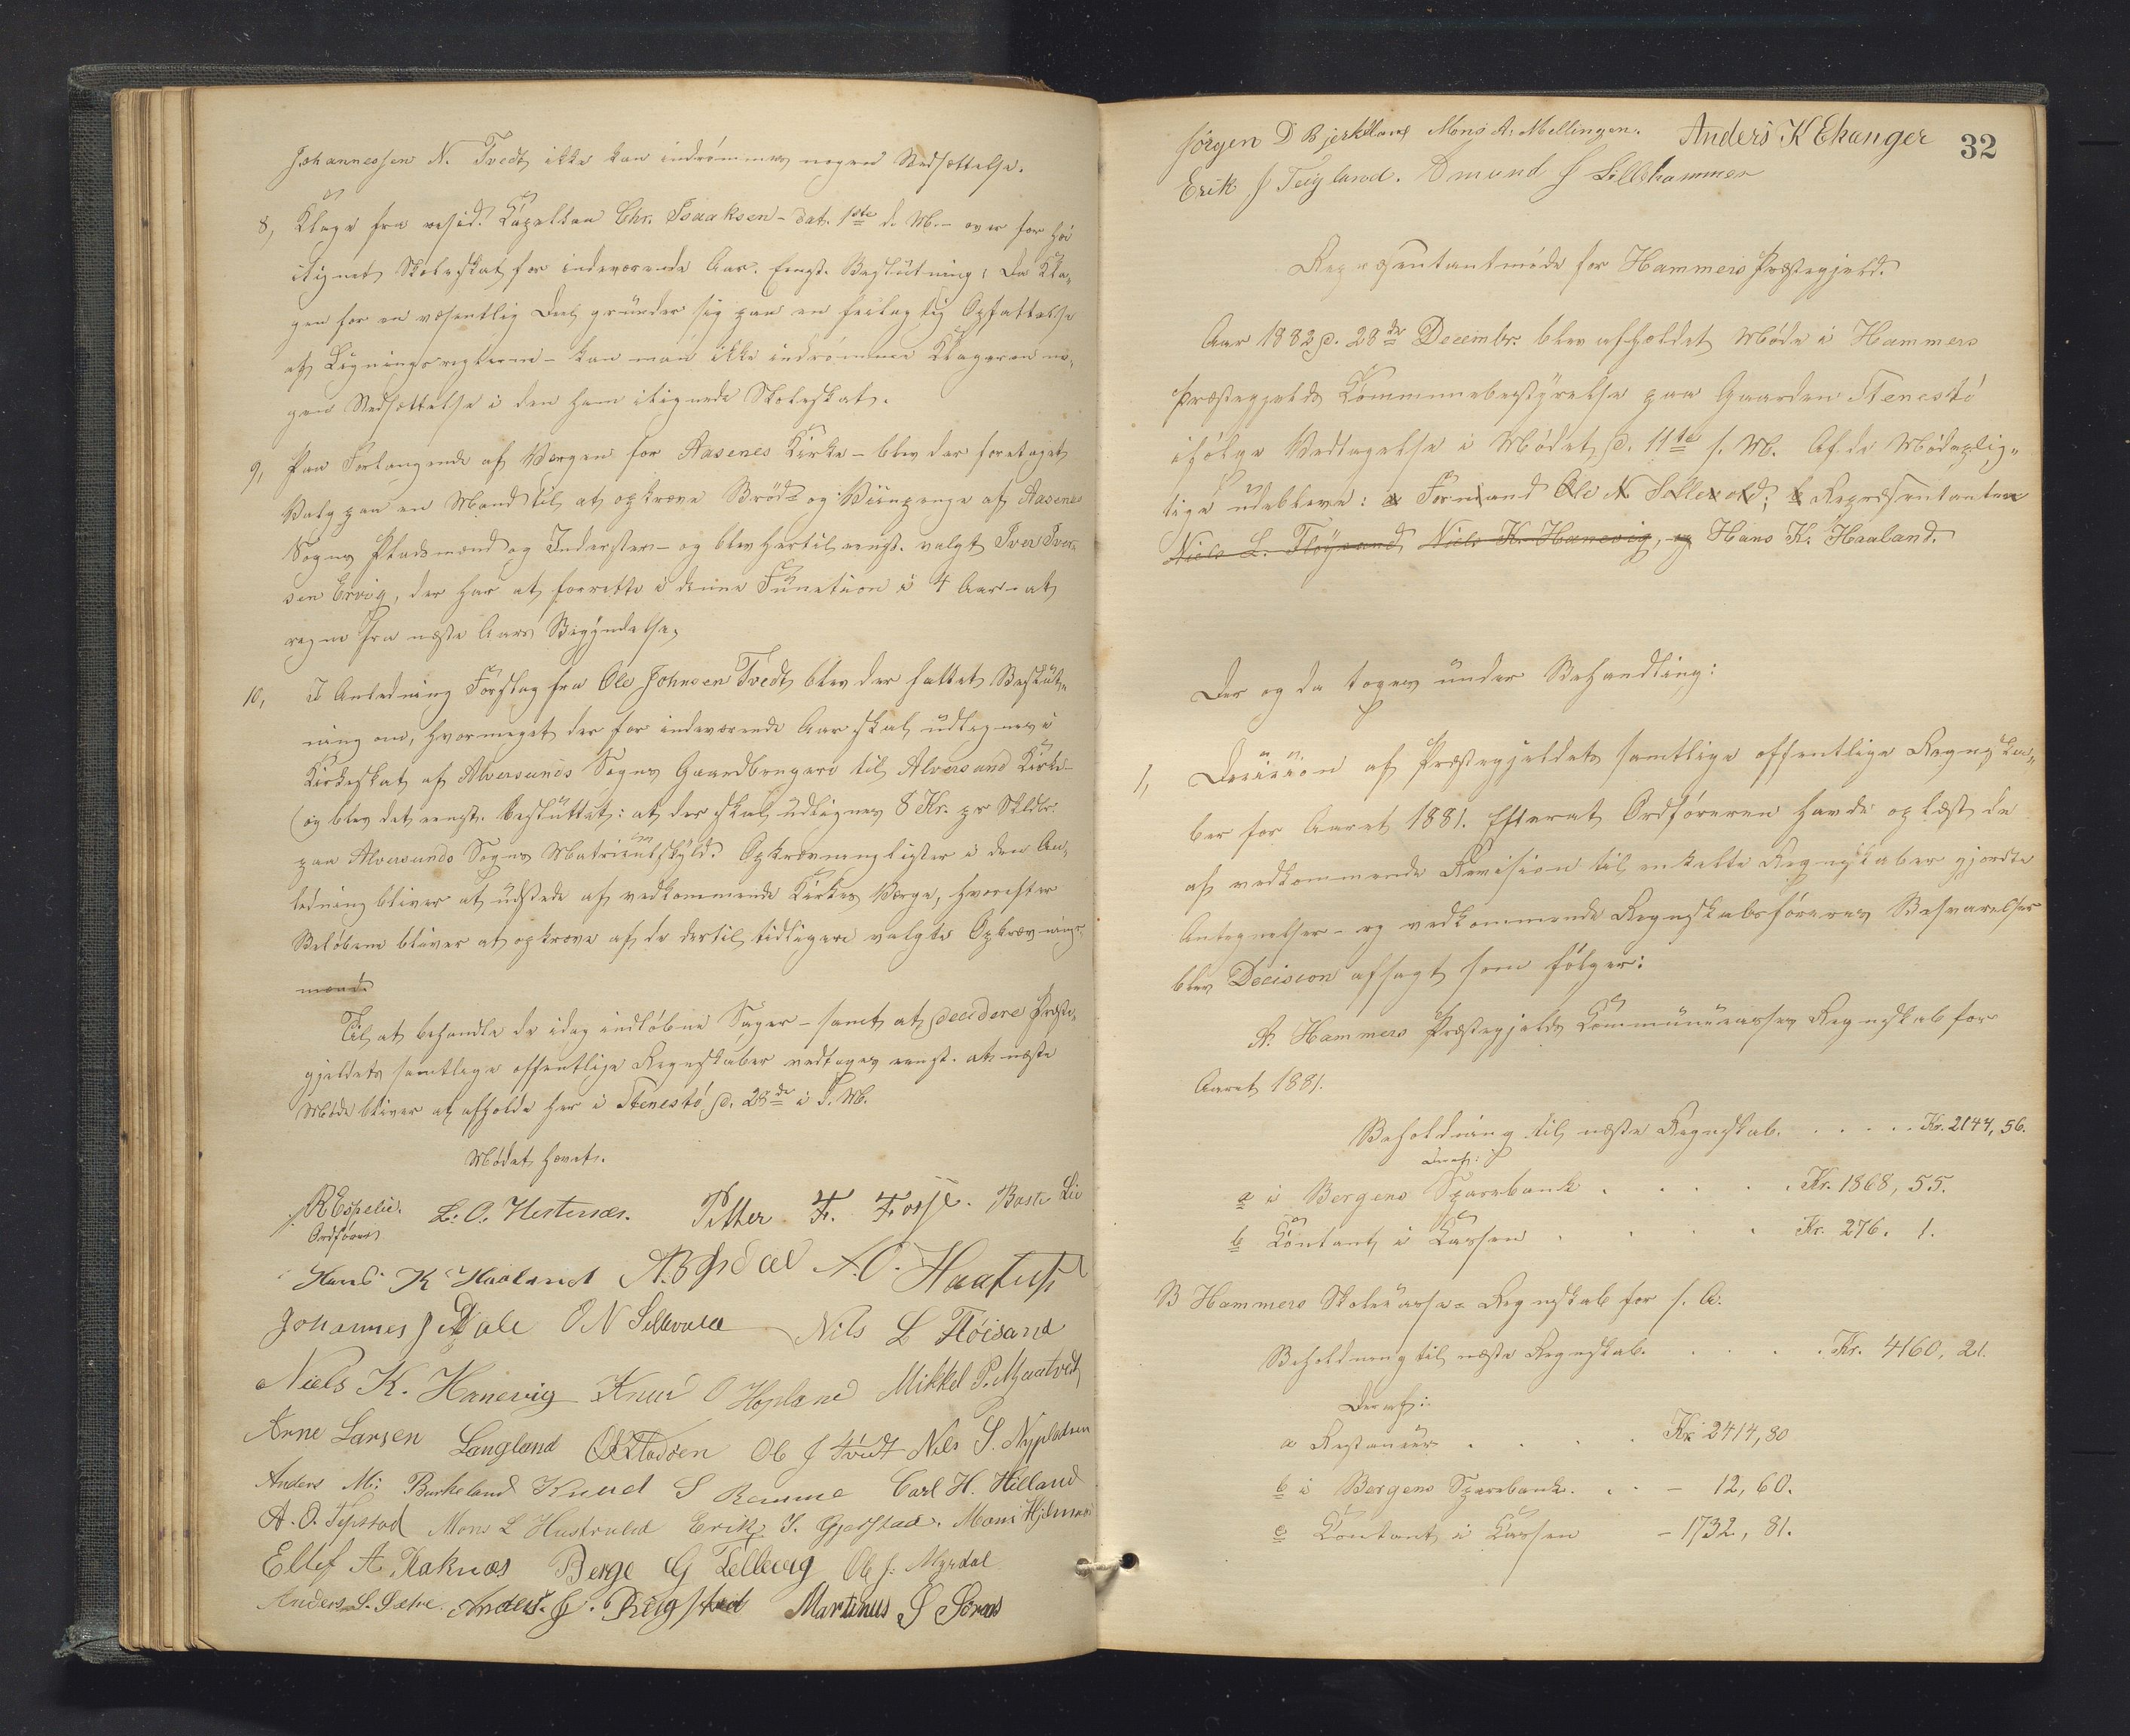 Johannessen N. Tvedt ikke kan indrømmes nogen Nedsættelse.
8, Klage fra resid. Kapellan Chr. Isaaksen - dat. 1ste d. M. - over for høi
ilignet Skoleskat for indeværende Aar. Enst. Beslutning: Da Kla-
gen for en væsentlig Deel grunder sig paa en feilagtig Opfattelse
af Ligningsreglerne - kan man ikke indrømme Klageren no-
gen Nedsættelse i den ham ilignede Skoleskat.
9, Paa Forlangende af Værgen for Aasenes Kirke - blev der foretaget
Valg paa en Mand til at opkræve Brød- og Viinpenge af Aasene
Sogns Pladsmænd og Inderster - og blev hertil enst. valgt Iver Iver-
sen Ervig, der har at forrette i denne Function i 4 Aar - at
regne fra næste Aars Begyndelse.
10, I Anledning Forslag fra Ole Johnsen Tvedt blev der fattet Beslut-
ning om, hvormeget der for indeværende Aar skal udlignes i
Kirkeskat af Alversunds Sogns Gaardbrugere til Alversund Kirke -
og blev det enst. besluttet: at der skal udlignes 8 Kr. pr Skldr.
paa Alversunds Sogns Matriculskyld. Opkrævningslister i den An-
ledning bliver at udstede af vedkommende Kirkes Værge, hvorefter
Beløbene bliver at opkræve af de dertil tidligere valgte Opkrævnings-
mænd.
Til at behandle de idag indløbne Sager - samt at decidere Præste-
gjeldets samtlige offentlige Regnskaber vedtoges enst. at næste
Møde bliver at afholde her i Stenestø d. 28de i d. M.
Mødet hævet.
R Espelid. L. O. Hertenæs. Petter F. Fosse. Baste Lie
Ordfører
Hans K Haaland A. O. Haatuft
Johannes J Dale O N Sellevold Nils L Fløisand
Niels K. Hanevig Knud O Hopland Mikkel P. Mjaatvedt
Arne Larsen Langland Ole J Tvedt Nils S.
Anders M. Birkeland Knud S Ramme Carl H. Hilland
A. O. Mons L Husebø Erik J. Gjerstad. Mons
Ellef A Haknæs Berge G Tellevig Ole J. Myrdal
Anders S. Sætre. Anders J. Rigstad Martinus S
Jørgen D Bjerkeland Mons A. Mellingen. Anders K Ekanger 32
Erik J Teigland. Amund J Lillehammer
Repræsentantmøde for Hammers Præstegjeld.
Aar 1882 d. 28de Decembr. blev afholdet Møde i Hammers
Præstegjelds Kommunebestyrelse paa Gaarden Stenestø
ifølge Vedtagelse i Mødet d. 11te s. M. Af de Mødeplig-
tige udebleve: a Formand Ole N Sellevold; b Repræsentanten
Niels L. Fløysand, Niels K. Hanevig, og Hans K. Haaland.
Der og da toges under Behandling:
1, Decision af Præstegjeldets samtlige offentlige Regnska-
ber for Aaret 1881. Efterat Ordføreren havde oplæst de
af vedkommende Revision til enkelte Regnskaber gjordte
Antegnelser - og vedkommende Regnskabsføreres Besvarelser
blev Decision afsagt som følger:
A. Hammers Præstegjelds Kommunecasses Regnskab for
Aaret 1881.
Beholdning til næste Regnskab. . . . . . Kr. 2144, 56.
Deraf:
a i Bergens Sparebank . . . . . Kr. 1868, 55.
b Contant i Cassen . . . . Kr. 276. 1.
B Hammers Skolecasse - Regnskab for s. A.
Beholdning til næste Regnskab. . . . . Kr. 4160, 21.
Deraf:
a Restancer . . . . Kr 2414, 80
b i Bergens Sparebank. . . - 12, 60.
c Contant i Cassen - 1732, 81.